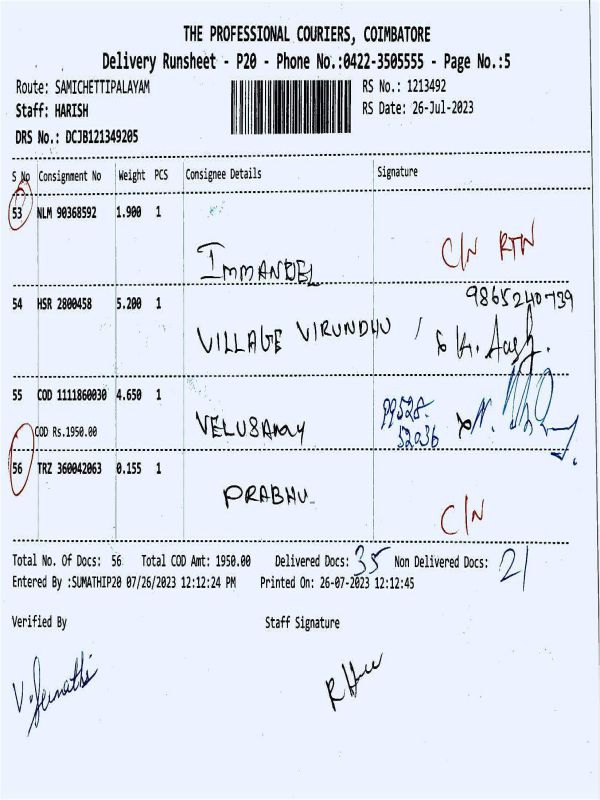 THE PROFESSIONAL COURIERS, COIMBATORE
Delivery Runsheet - P20 - Phone No.:0422-3505555 - Page No.:5
Route: SAMICHETTIPALAYAM RS No.: 1213492
Staff: HARISH RS Date: 26-Jul-2023
DRS No.: DCJB121349205
S No Consignment No Weight PCS Consignee Details Signature
53 NLM 90368592 1.900 1
IMMANUEL C/N RTN
54 HSR 2800458 5.200 1 9865240739
VILLAGE VIRUNDHU /
55 COD 1111860030 4.650 1 99528
COD Rs.1950.00 VELUSAMY 52036
56 TRZ 360042063 0.155 1
PRABHU C/N
Total No. Of Docs: 56 Total COD Amt: 1950.00 Delivered Docs: 35 Non Delivered Docs: 21
Entered By :SUMATHIP20 07/26/2023 12:12:24 PM Printed On: 26-07-2023 12:12:45
Verified By Staff Signature
V.Sumathi